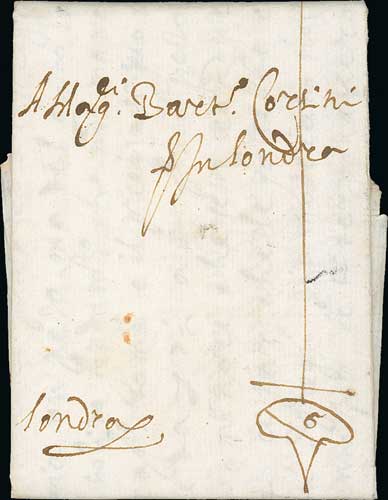 A Mag.ci Bart.º Corsini
In londra
londra
6